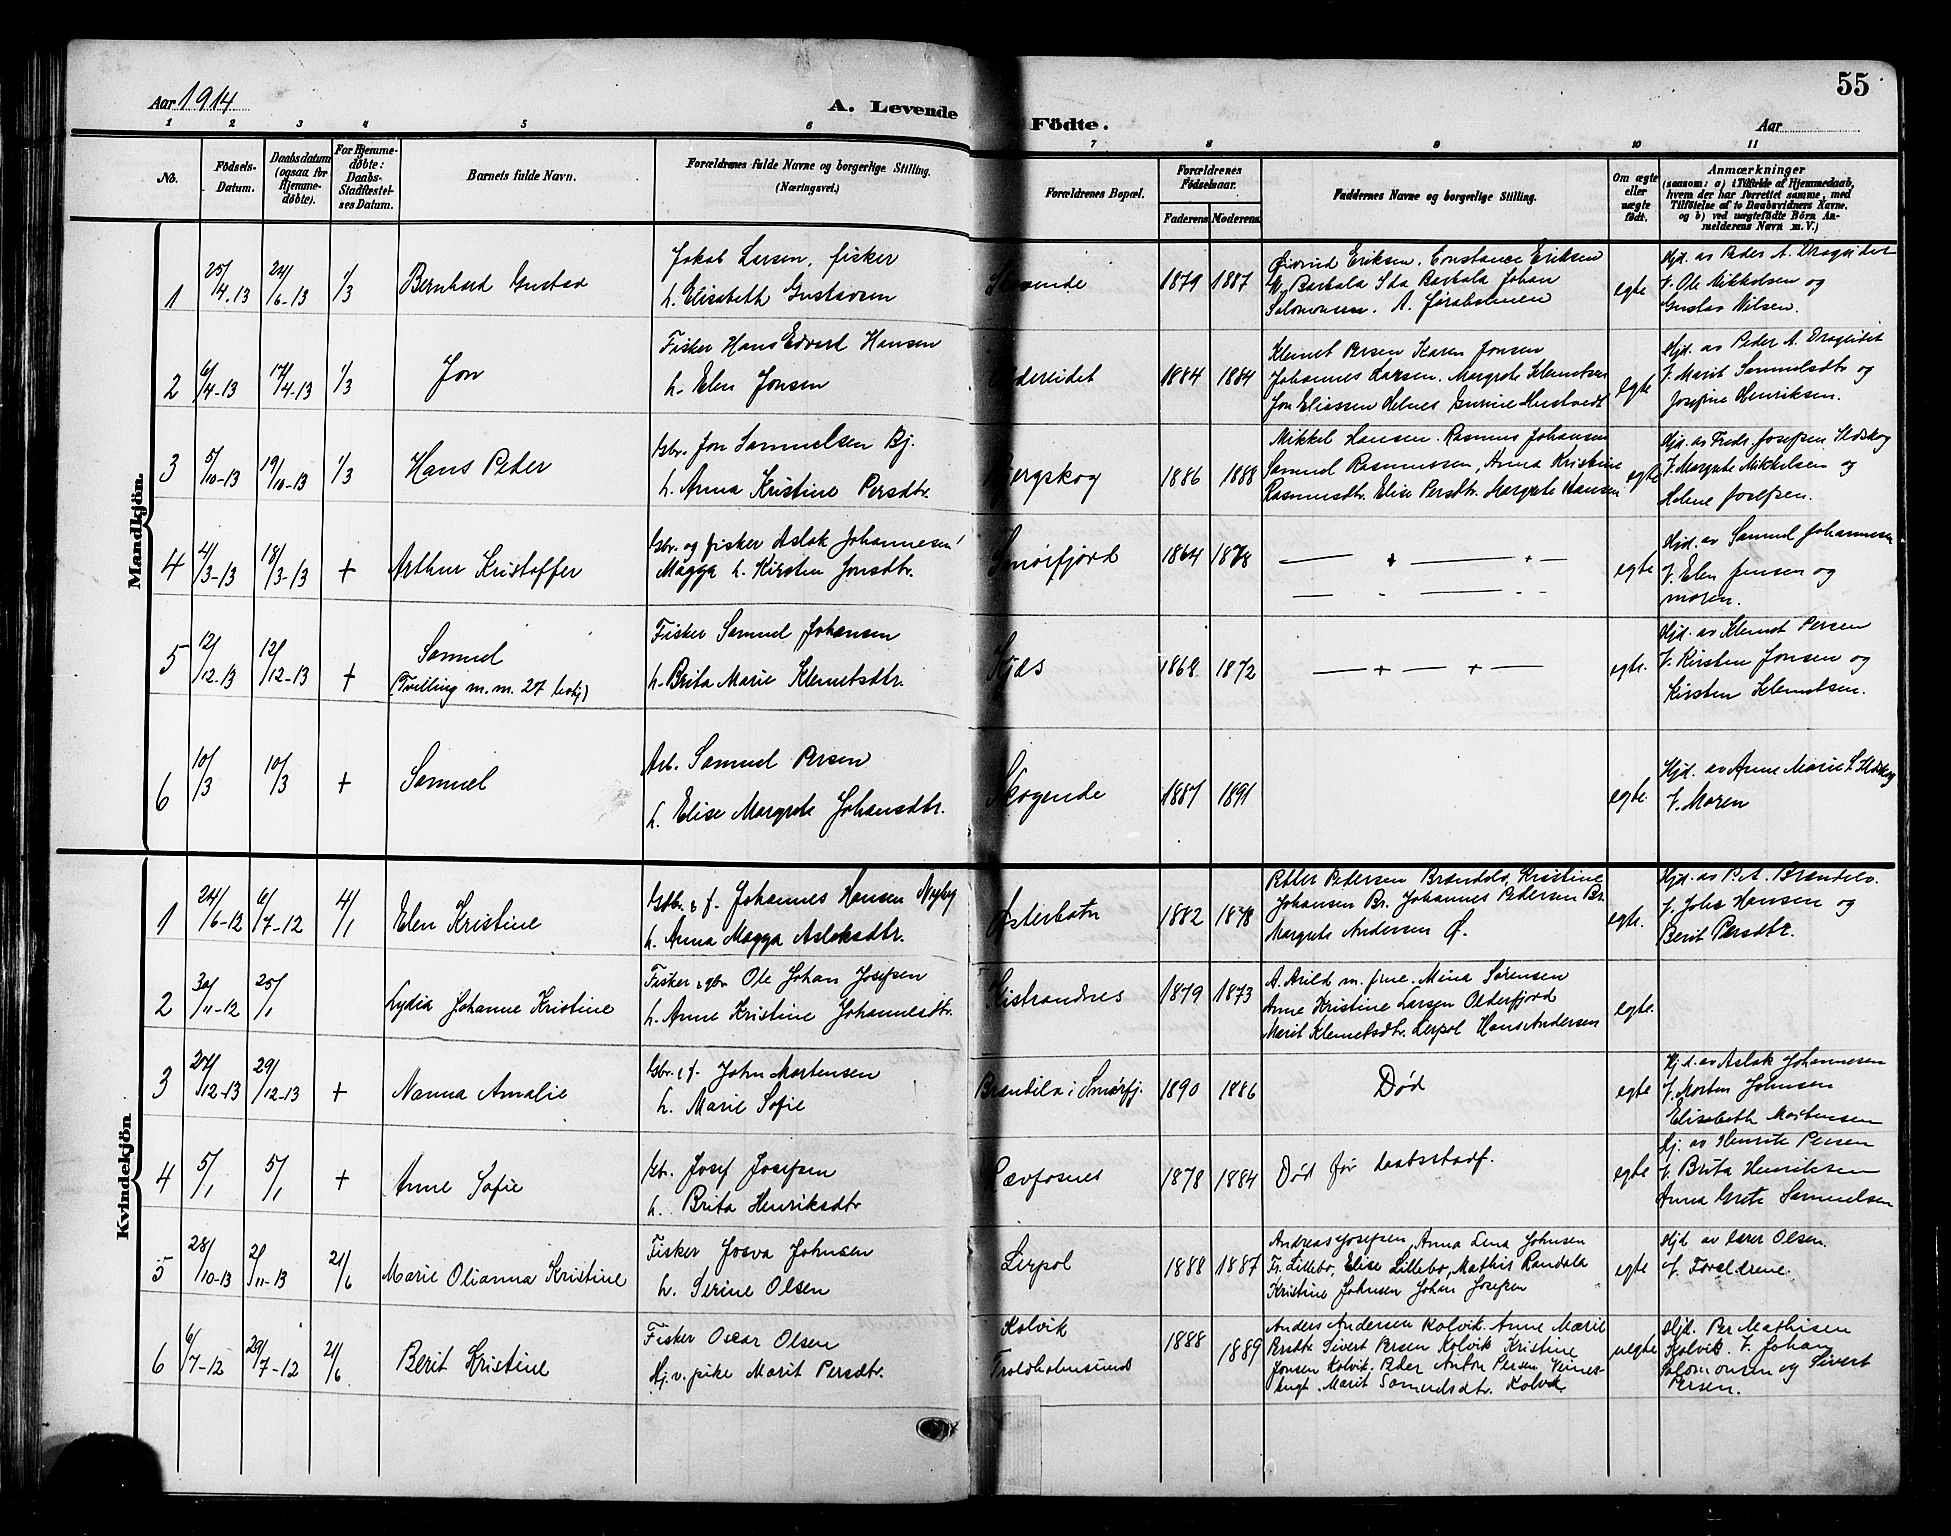 Aar 1914
A. Levende Födte.
Aar
55
1 2 3 4 5 6 7 8 9 10 11
No.
Födsels-Datum.
Daabsdatum (ogsaa for Hjemmedöbte).
For Hjemmedöbte: Daabs-Stadfæstelses Datum.
Barnets fulde Navn.
Forældrenes fulde Navne og borgerlige Stilling. (Næringsvei.)
Forældrenes Bopæl.
Forældrenes Födselsaar.
Faderens Moderens
Faddernes Navne og borgerlige Stilling.
Om ægte eller uægte födt.
Anmærkninger
(saasom: a) i Tilfælde af Hjemmedaab, hvem der har forrettet samme, med Tilföielse af to Daabsvidners Navne, og b) ved uægtefödte Börn Anmelderens Navn m. V.)
Mandkjön.
1 25/4-13 24/6-13 1/3 Bernhard Gustav
Jakob Larsen, fisker
h. Elisabeth Gustavsen
1879 1887
Øivind Eriksen. Constance Eriksen
Barbala Ida Barbala Johan
Salomonsen. A.
egte
Hjd. av Peder A. Drageidet
V. Ole Mikkelsen og
Gustav Nilsen.
2 6/4-13 17/4-13 1/3 Jon
Fisker Hans Edvard Hansen
h. Elen Jonsen
1884 1884
Klemet Persen Karen Jonsen
Johannes Larsen. Margrete Klemetsen
Jon Eliassen Helnes Gunnie Hustvedt
egte
Hjd. av Peder A. Drageidet
V. Marit Samuelsdtr og
Josefine Henriksen.
3 5/10-13 19/10-13 1/3 Hans Peder
Gbr. Jon Samuelsen Bj.
h. Anna Kristine Persdtr.
1886 1888
Mikkel Hansen. Rasmus Johansen
Samuel Rasmussen, Anna Kristine
Rasmusdtr. Elise Persdtr. Margrete Hansen
egte
Hjd. av Fredr. Josefsen Ildskog
V. Margrete Mikkelsen og
Helene Josefsen.
4 4/3-13 18/3-13 + Arthur Kristoffer
Gbr. og fisker Aslak Johannesen
Magga h. Kirsten Jonsdtr.
Smørfjord 1864 1878
— + — + —
egte
Hjd. av Samuel Johannesen
V. Elen Jensen og
moren.
5 12/12-13 12/12-13 + Samuel
(Tvilling m. m. 27
Fisker Samuel Johansen
h. Brita Marie Klemetsdtr.
1868 1872
— + — + —
egte.
Hjd. av Klemet Persen
V. Kirsten Jonsen og
Kirsten Klemetsen.
6 10/3 10/3 + Samuel
Arb. Samuel Persen
h. Elise Margrete Johansdtr.
Skogende 1887 1891
egte.
Hjd. av Anne Marie S. Ildskog
V. Moren
Kvindekjön
1 24/6-12 6/7-12 4/1 Elen Kristine
Gbr. & f. Johannes Hansen Nyby
h. Anna Magga Aslaksdtr.
Østerbotn 1882 1878
Petter Pedersen Brændelv, Kristine
Johansen Br. Johannes Pedersen Br.
Margrete Andersen Ø.
egte.
Hjd. av P. A. Brændelv.
V. Johs Hansen og
Berit Persdtr.
2 30/11-12 25/1 Lydia Johanne Kristine
Fisker & gbr Ole Johan Josefsen
h. Anne Kristine Johannesdtr.
Kistrandnes 1879 1873
A. Arild m. frue. Mina Sørensen
Anne Kristine Larsen Olderfjord
Marit Klemetsdtr. Lerpol Hans Andersen
egte.
3 27/12-13 29/12-13 + Nanna Amalie
Gbr. & f. John Mortensen
h. Marie Sofie
Brændelv i Smørfj. 1890 1886
Død
egte
Hj. d. av Aslak Johannesen
V. Morten Johnsen
Elisabeth Mortensen
4 5/1 5/1 + Anne Sofie
Gb. Josef Josefsen
h. Brita Henriksdtr
Rævfosnes 1878 1884
Død før daabsstadf.
egte
Hj. av Henrik Persen
V. Brita Henriksen
Anna Grete Samuelsen
5 28/10-13 2/11-13 21/6 Marie Olianna Kristine
Fisker Josva Johnsen
h. Serine Olsen
Lerpol 1888 1887
Andreas Josefsen, Anna Lena Johnsen
Fr. Lillebo, Elise Lillebo, Mathis Randala
Kristine Johnsen Johan Josefsen
egte
Hjd. av lærer Olsen.
V. Foreldrene.
6 6/7-12 29/7-12 21/6 Berit Kristine
Fisker Oscar Olsen
Hj. v. pike Marit Persdtr.
Kolvik
Troldholmsund
1888 1889
Anders Andersen Kolvik. Anne Marie
Persdtr Sivert Persen Kolvik Kristine
Jonsen Kolvik, Peder Anton Persen,
Marit Samuelsdtr. Kolvik
uegte
Hjd. Per Mathisen
Kolvik V. Johan
Salomonsen og Sivert
Persen.